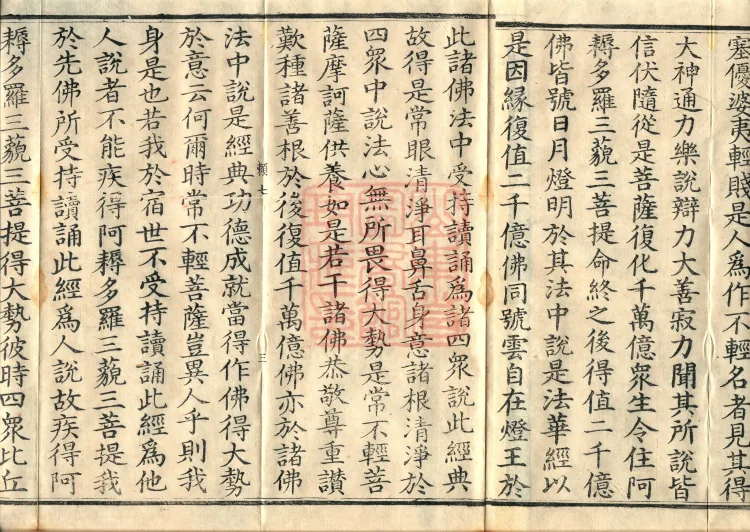 塞優婆夷輕賤是人爲作不輕名者見其得
大神通力樂說辯力大善寂力聞其所說皆
信伏隨從是菩薩復化千萬億衆生令住阿
耨多羅三藐三菩提命終之後得值二千億
佛皆號日月燈明於其法中說是法華經以
是因緣復值二千億佛同號雲自在燈王於
此諸佛法中受持讀誦爲諸四衆說此經典
故得是常眼清淨耳鼻舌身意諸根清淨於
四衆中說法心無所畏得大勢是常不輕菩
薩摩訶薩供養如是若干諸佛恭敬尊重讚
歎種諸善根於後復值千萬億佛亦於諸佛
賴七 三
法中說是經典功德成就當得作佛得大勢
於意云何爾時常不輕菩薩豈異人乎則我
身是也若我於宿世不受持讀誦此經爲他
人說者不能疾得阿耨多羅三藐三菩提我
於先佛所受持讀誦此經爲人說故疾得阿
耨多羅三藐三菩提得大勢彼時四衆比丘